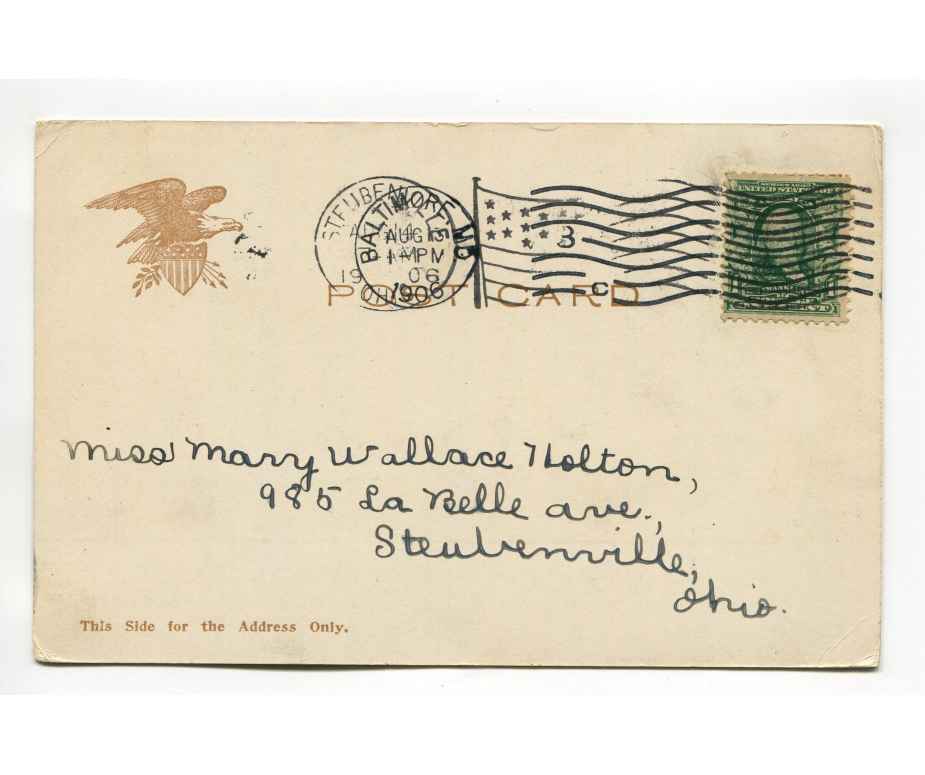 STEUBENVILLE
BALTIMORE, MD.
AUG 13
1 PM
19 06
1906
OHIO
3
C
POST CARD
UNITED STATES
Miss Mary Wallace Holton,
985 La Belle ave.,
Steubenville,
Ohio.
This Side for the Address Only.